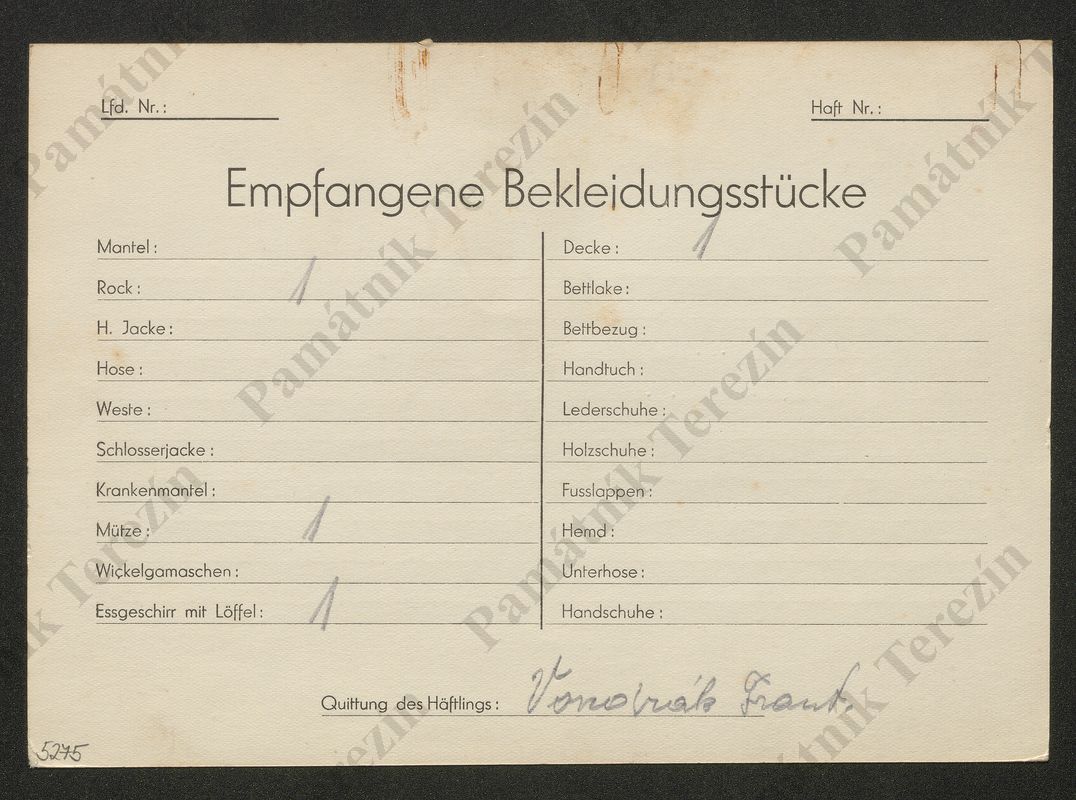 Lfd. Nr.:
Haft Nr.:
Empfangene Bekleidungsstücke
Mantel:
Rock: 1
H. Jacke:
Hose:
Weste:
Schlosserjacke:
Krankenmantel:
Mütze: 1
Wickelgamaschen:
Essgeschirr mit Löffel: 1
Decke: 1
Bettlake:
Bettbezug:
Handtuch:
Lederschuhe:
Holzschuhe:
Fusslappen:
Hemd:
Unterhose:
Handschuhe:
Quittung des Häftlings: Vondrák Frant.
5275
Památník Terezín